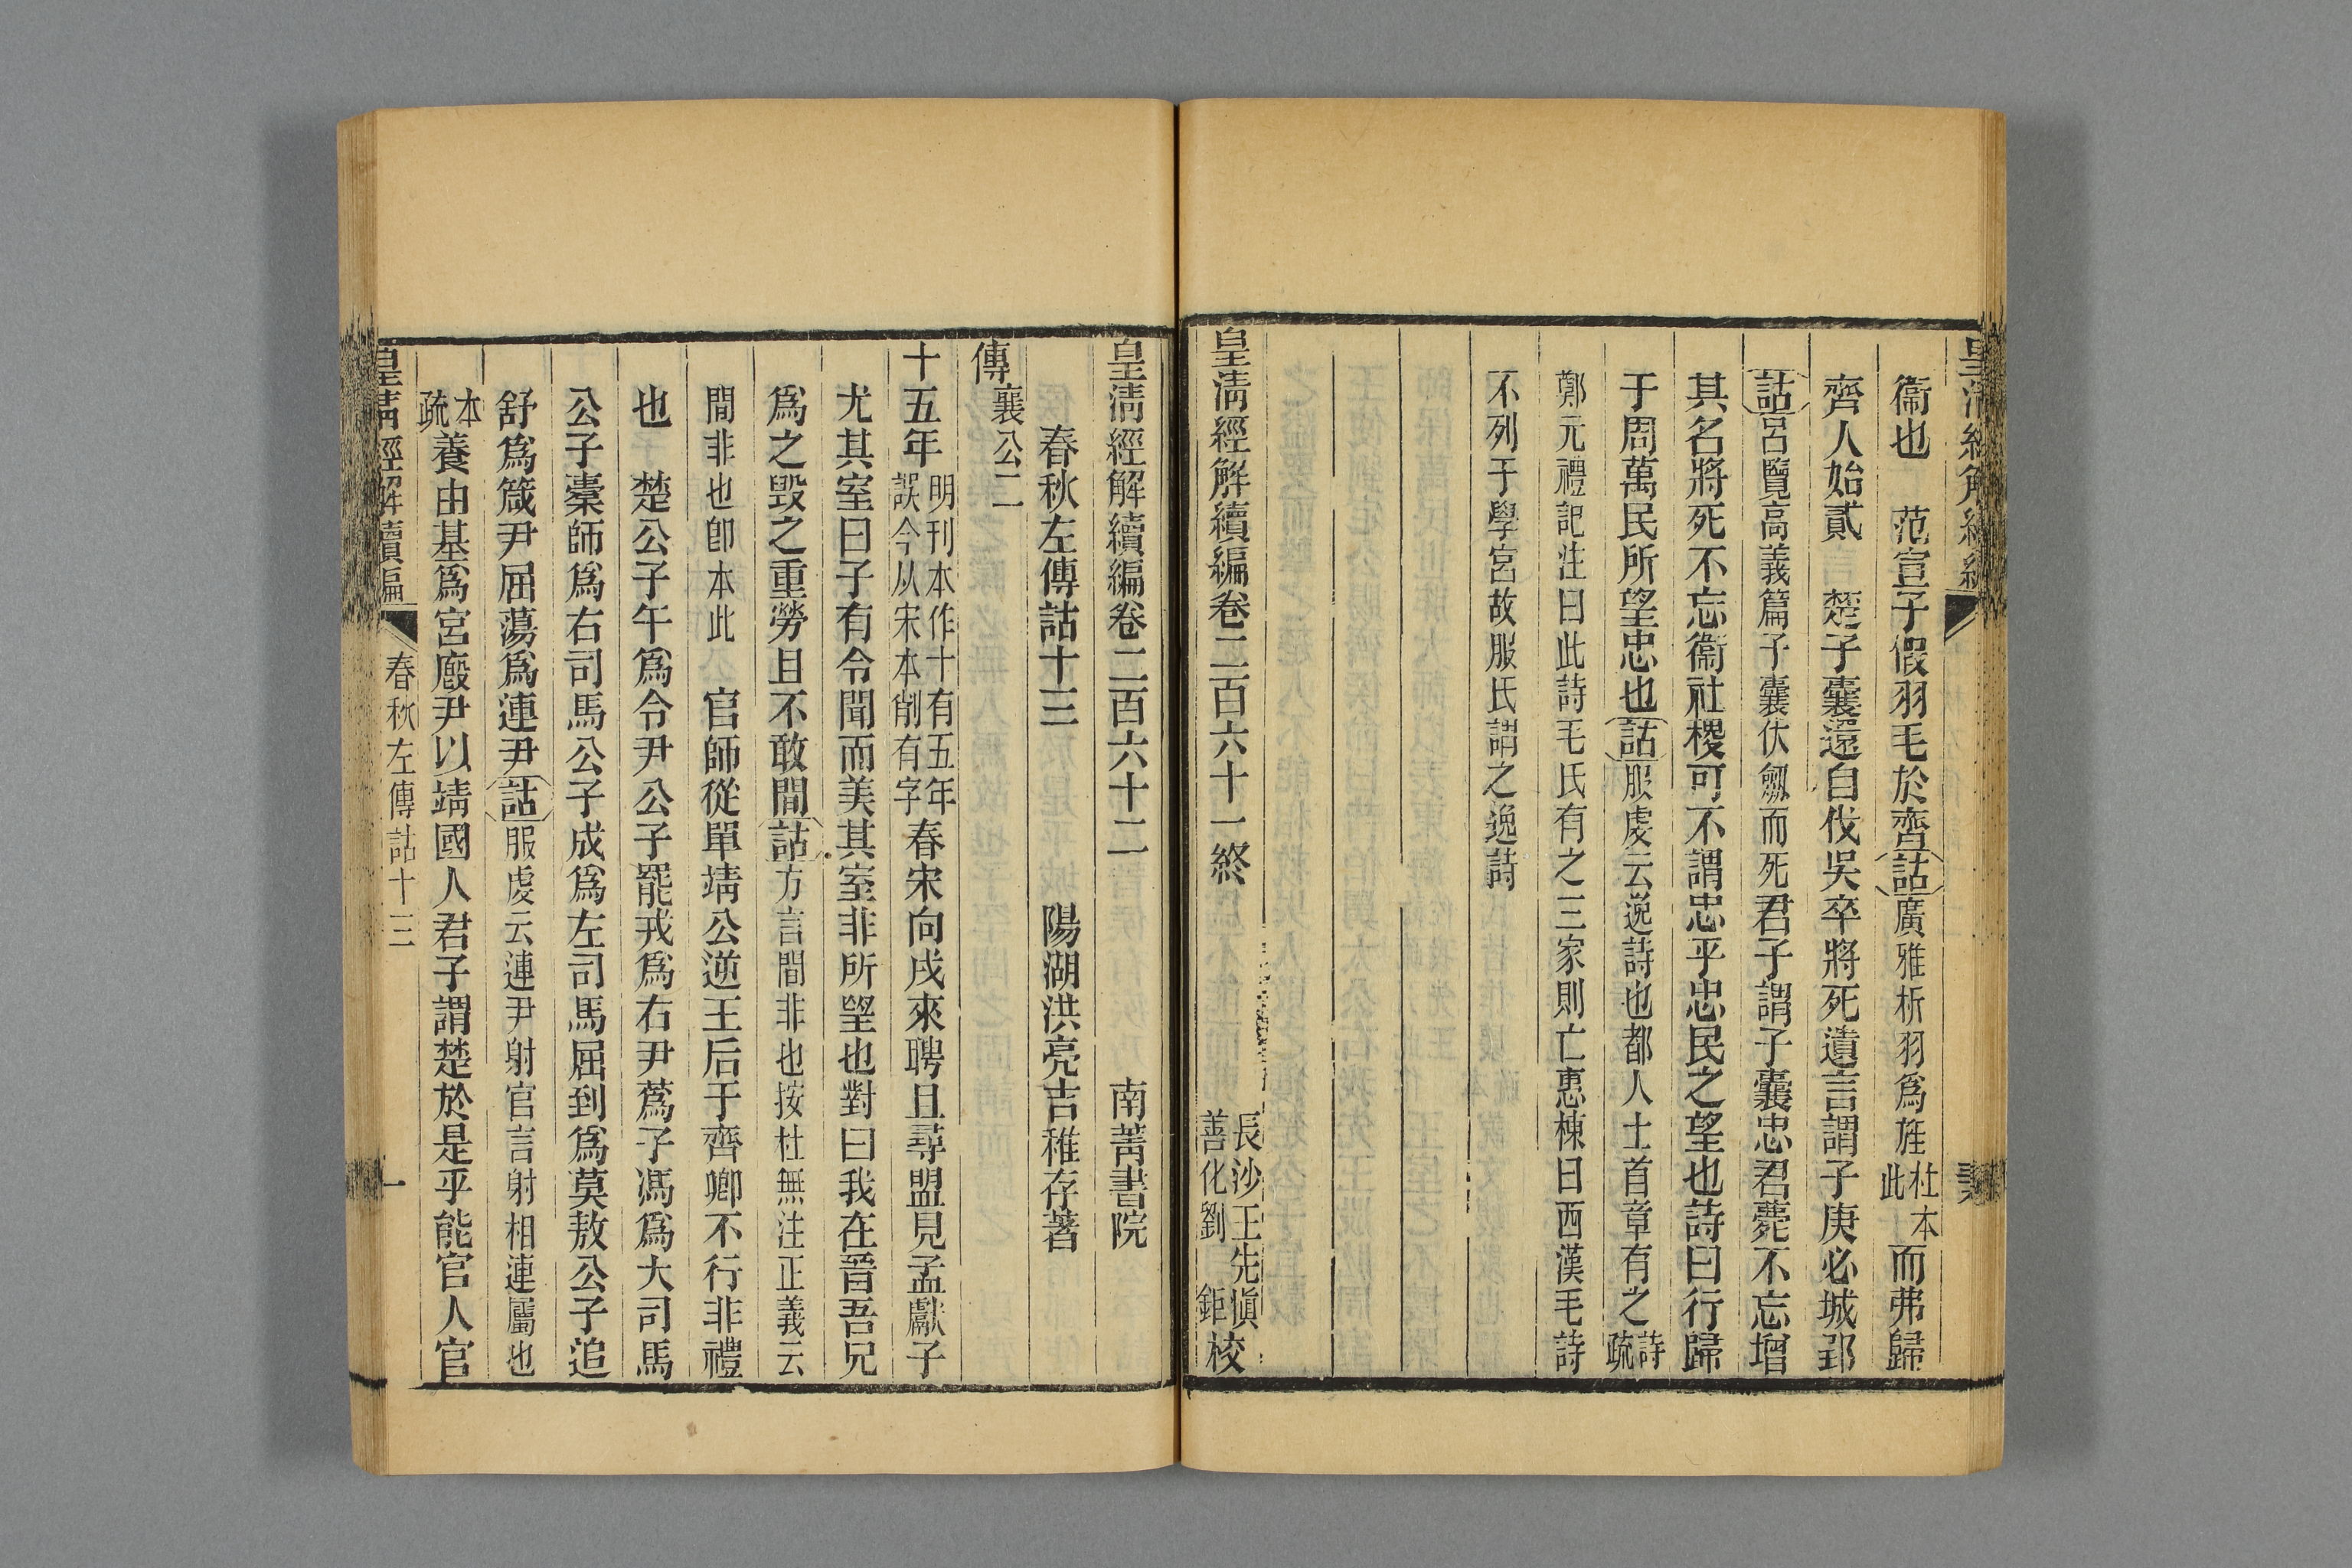 衞也　范宣子假羽毛於齊詁廣雅析羽爲旌杜本此而弗歸
齊人始貳　楚子囊還自伐吳卒將死遺言謂子庚必城郢
詁呂覽高義篇子囊伏劒而死君子謂子囊忠君薨不忘增
其名將死不忘衞社稷可不謂忠乎忠民之望也詩曰行歸
于周萬民所望忠也詁服虔云逸詩也都人士首章有之詩疏
鄭元禮記注曰此詩毛氏有之三家則亡惠棟曰西漢毛詩
不列于學宮故服氏謂之逸詩
皇淸經解續編卷二百六十一終　長沙王先愼善化劉鉅校
皇淸經解續編卷二百六十二　南菁書院
春秋左傳詁十三　陽湖洪亮吉稚存著
傳襄公二
十五年明刊本作十有五年誤今从宋本削有字春宋向戌來聘且尋盟見孟獻子
尤其室曰子有令聞而美其室非所望也對曰我在晉吾兄
爲之毀之重勞且不敢間詁方言間非也按杜無注正義云
間非也卽本此　官師從單靖公逆王后于齊卿不行非禮
也　楚公子午爲令尹公子罷戎爲右尹蔿子馮爲大司馬
公子橐師爲右司馬公子成爲左司馬屈到爲莫敖公子追
舒爲箴尹屈蕩爲連尹詁服虔云連尹射官言射相連屬也
本疏養由基爲宮廏尹以靖國人君子謂楚於是乎能官人官
皇淸經解續編　春秋左傳詁十三　一